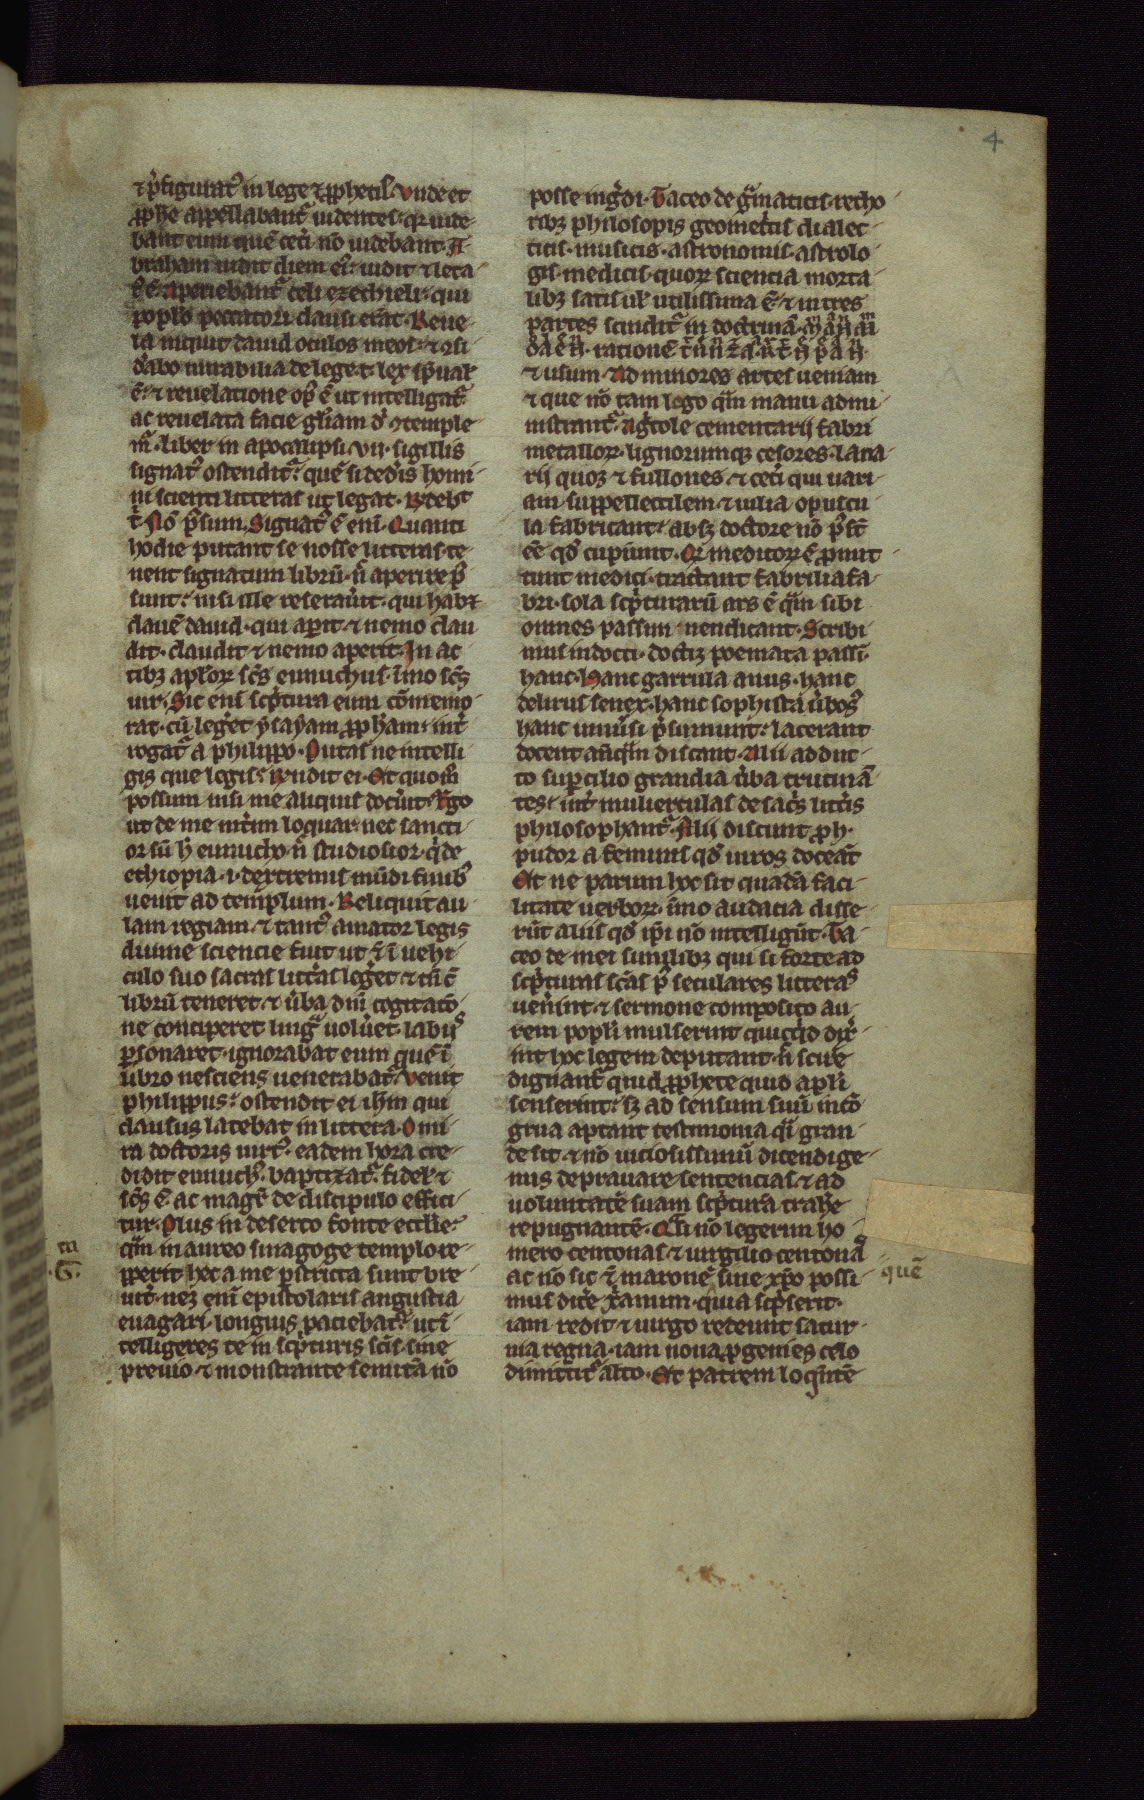 4
⁊ p̃figurat᷒ in lege ⁊ ꝓphetis. Vnde et
ꝓphe appellabant᷑ uidentes. qr uide-
bant eum quē cet̓i nō uidebant. A-
braham uidit diem ei᷒. uidit ⁊ leta-
t᷒ ē. Aperiebant᷑ celi ezechieli. qui
pop̃lo peccatori clausi erāt. Reue-
la inquit dauid oculos meos. ⁊ ꝯsi-
d̓abo mirabilia de lege t. lex sp̃ual᷒
ē. ⁊ reuelatione op᷒ ē ut intelligat᷑
ac reuelata facie gl̃iam d̓i ꝯtemple-
m᷑. liber in apocalipsi. vii. sigillis
signat᷒ ostendit᷑. quē si ded̓is homi-
ni scienti litteras ut legat. Rn̄deb̓
t̓. Nō p̃sum. Signat᷒ ē eni. Quanti
hodie putant se nosse litteras. te-
nent signatum librū. n̄ aperire p̄
sunt. nisi ille reserau̓it. qui habꝫ
clauē dauid. qui apit ⁊ nemo clau
dit. claudit ⁊ nemo aperit. In ac
tibꝫ apl̓oꝝ sc̄s eunuchus. imo sc̄s
uir. Sic eni sc̓ptura eum cōmemo-
rat. cū leg̓et ysayam ꝓph̃am. int̓
rogat᷒ a philippo. Putas ne intelli
gis que legis. Rn̄dit ei. Et quom̃
possum nisi me aliquis docu̓it. Ego
ut de me int̓im loquar. nec sancti-
or sū h̓ eunucho. n̄ studiosior. q̓ de
ethiopia. i. de extremis mūdi finib᷒
uenit ad templum. Reliquit au-
lam regiam. ⁊ tant᷒ amator legis
diuine sciencie fuit ut ⁊ ī uehi-
culo suo sacras litt̓as leg̓et ⁊ tn̄ c̄
librū teneret. ⁊ ub̓a dn̄i cogitatō-
ne conciperet ling᷑ uolu̓et. labiis
ꝑsonaret. ignorabat eum quē ī
libro nesciens uenerabat᷑. Venit
philippus. ostendit ei ih̄m qui
clausus latebat in littera. O mi-
ra doctoris uirt᷒. eadem hora cre-
didit eunuch᷒. baptizat᷑. fidel᷒ ⁊
sc̄s ē. ac magr̄ de discipulo effici-
tur. Plus in deserto fonte ecclie.
qm̄ in aureo sinagoge templo re-
pperit. hec a me ꝑstricta sunt bre
uit̓. neqꝫ eni epistolaris angustia
euagari longius paciebat᷑. ut ī-
telligeres te in sc̓pturis sc̄is sine
preuio. ⁊ monstrante semitā nō
posse ing̓di. Taceo de g̃maticis. retho-
ribꝫ philosopis geomet̓s dialec-
ticis. musicis. astronomis. astrolo-
gis. medicis. quoꝝ sciencia morta-
libꝫ satis ul̓ utilissima ē. ⁊ in tres
partes scindit᷑ in doctrinā.
⁊ usum. Ad minores artes ueniam
⁊ que nō tam logo qm̄ manu admi-
nistrant᷑. Agͥcole cementarii fabri
metalloꝝ. lignorumqꝫ cesores. lana-
rii quoqꝫ ⁊ fullones. ⁊ cet̓i qui uari-
am suppellectilem ⁊ uilia opuscu-
la fabricant. absqꝫ doctore nō p̄st̄
eē qd̓ cupiunt. Qr medicoꝝ ē ꝓmit-
tunt medici. tractant fabrilia fa-
bri. sola sc̓pturarū ars ē qm̄ sibi
omnes passim uendicant. Scribi-
mus indocti. doctiqꝫ poemata passī.
hanc. Hanc garrula anus. hanc
delirus senex. hanc sophista u̓bos᷒
hanc uniu̓si p̓sumunt. lacerant
docent an̄qm̄ discant. Alii adduc-
to sup̓cilio grandia u̓ba trutinā
tes. int̓ mulierculas de sac̓s litt̓is
philosophant᷑. Alii discunt ꝓh.
pudor a feminis qd̓ uiros doceāt
Et ne parum hoc sit quadā faci-
litate uerboꝝ. imo audacia disse-
rūt aliis qd̓ ip̄i nō intelligūt. Ta-
ceo de mei similibꝫ qui si forte ad
sc̓pturas sc̄as p᷒ seculares litteras
uen̓int. ⁊ sermone composito au-
rem popl̓i mulserint quicq̓d dix̓-
int hoc legem deputant. n̄ scire
dignant᷑ quid ꝓphete quid apl̓i
senserint. sꝫ ad sensum suū incō-
grua aptant testimonia qͣi gran-
de sit ⁊ nō uiciosissimū dicendi ge-
nus deprauare sentencias. ⁊ ad
uoluntatē suam sc̓pturā trah̓e
repugnantē. Qͣi nō legerim ho-
mero centonas. ⁊ uirgilio centonā
ac nō sic ⁊ maronē sine xp̄o possi-
mus dic̓e xp̄ianum. quia sc̓pserit.
iam redit ⁊ uirgo redeunt satur-
nia regna. iam noua ꝓgenies celo
dimittit᷑ alto. Et patrem loq̓ntē
quē